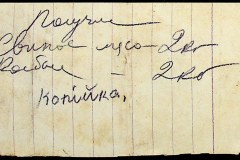 Получил
Свиное мясо - 2 кг
Колбас - 2 кг
Копійка.